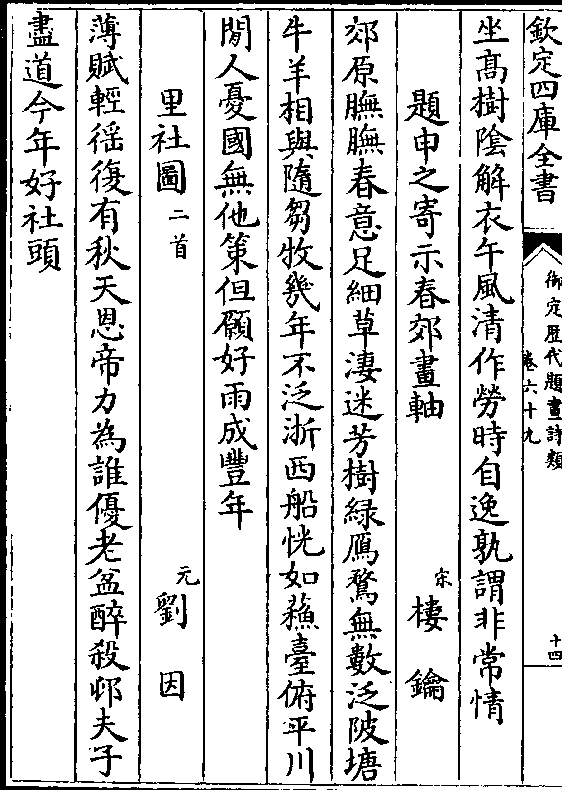 欽定四庫全書
御定歴代題畫詩類
卷六十九
十四
坐髙樹陰解衣午風清作勞時自逸孰謂非常情
題申之寄示春郊畫軸
宋
樓鑰
郊原膴膴春意足細草淒迷芳樹綠鴈鶩無數泛陂塘
牛羊相與隨芻牧幾年不泛浙西船恍如蘓臺俯平川
閒人憂國無他策但願好雨成豐年
里社圖二首
元
劉因
薄賦輕徭復有秋天恩帝力為誰優老盆醉殺邨夫子
盡道今年好社頭